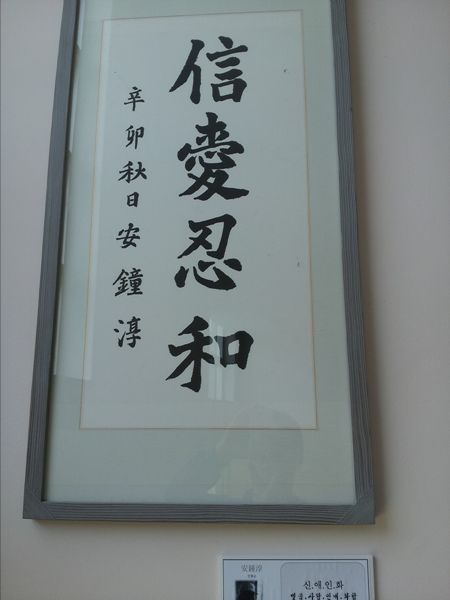 信愛忍和
辛卯秋日安鐘淳
安鐘淳
신.애.인.화